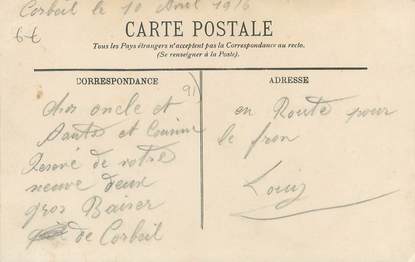 Corbeil le 10 Avril 1916
6€
CARTE POSTALE
Tous les Pays étrangers n'acceptent pas la Correspondance au recto.
(Se renseigner à la Poste).
CORRESPONDANCE
91)
cher oncle et
tante et Cousine
de votre
neuve deux
gros Baiser
de Corbeil
ADRESSE
en Route pour
le fron
Louis